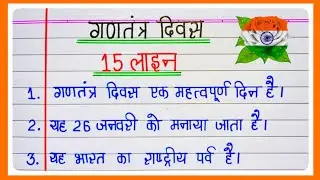 गणतंत्र दिवस
15 लाइन
1. गणतंत्र दिवस एक महत्वपूर्ण दिन है।
2. यह 26 जनवरी को मनाया जाता है।
3. यह भारत का राष्ट्रीय पर्व है।